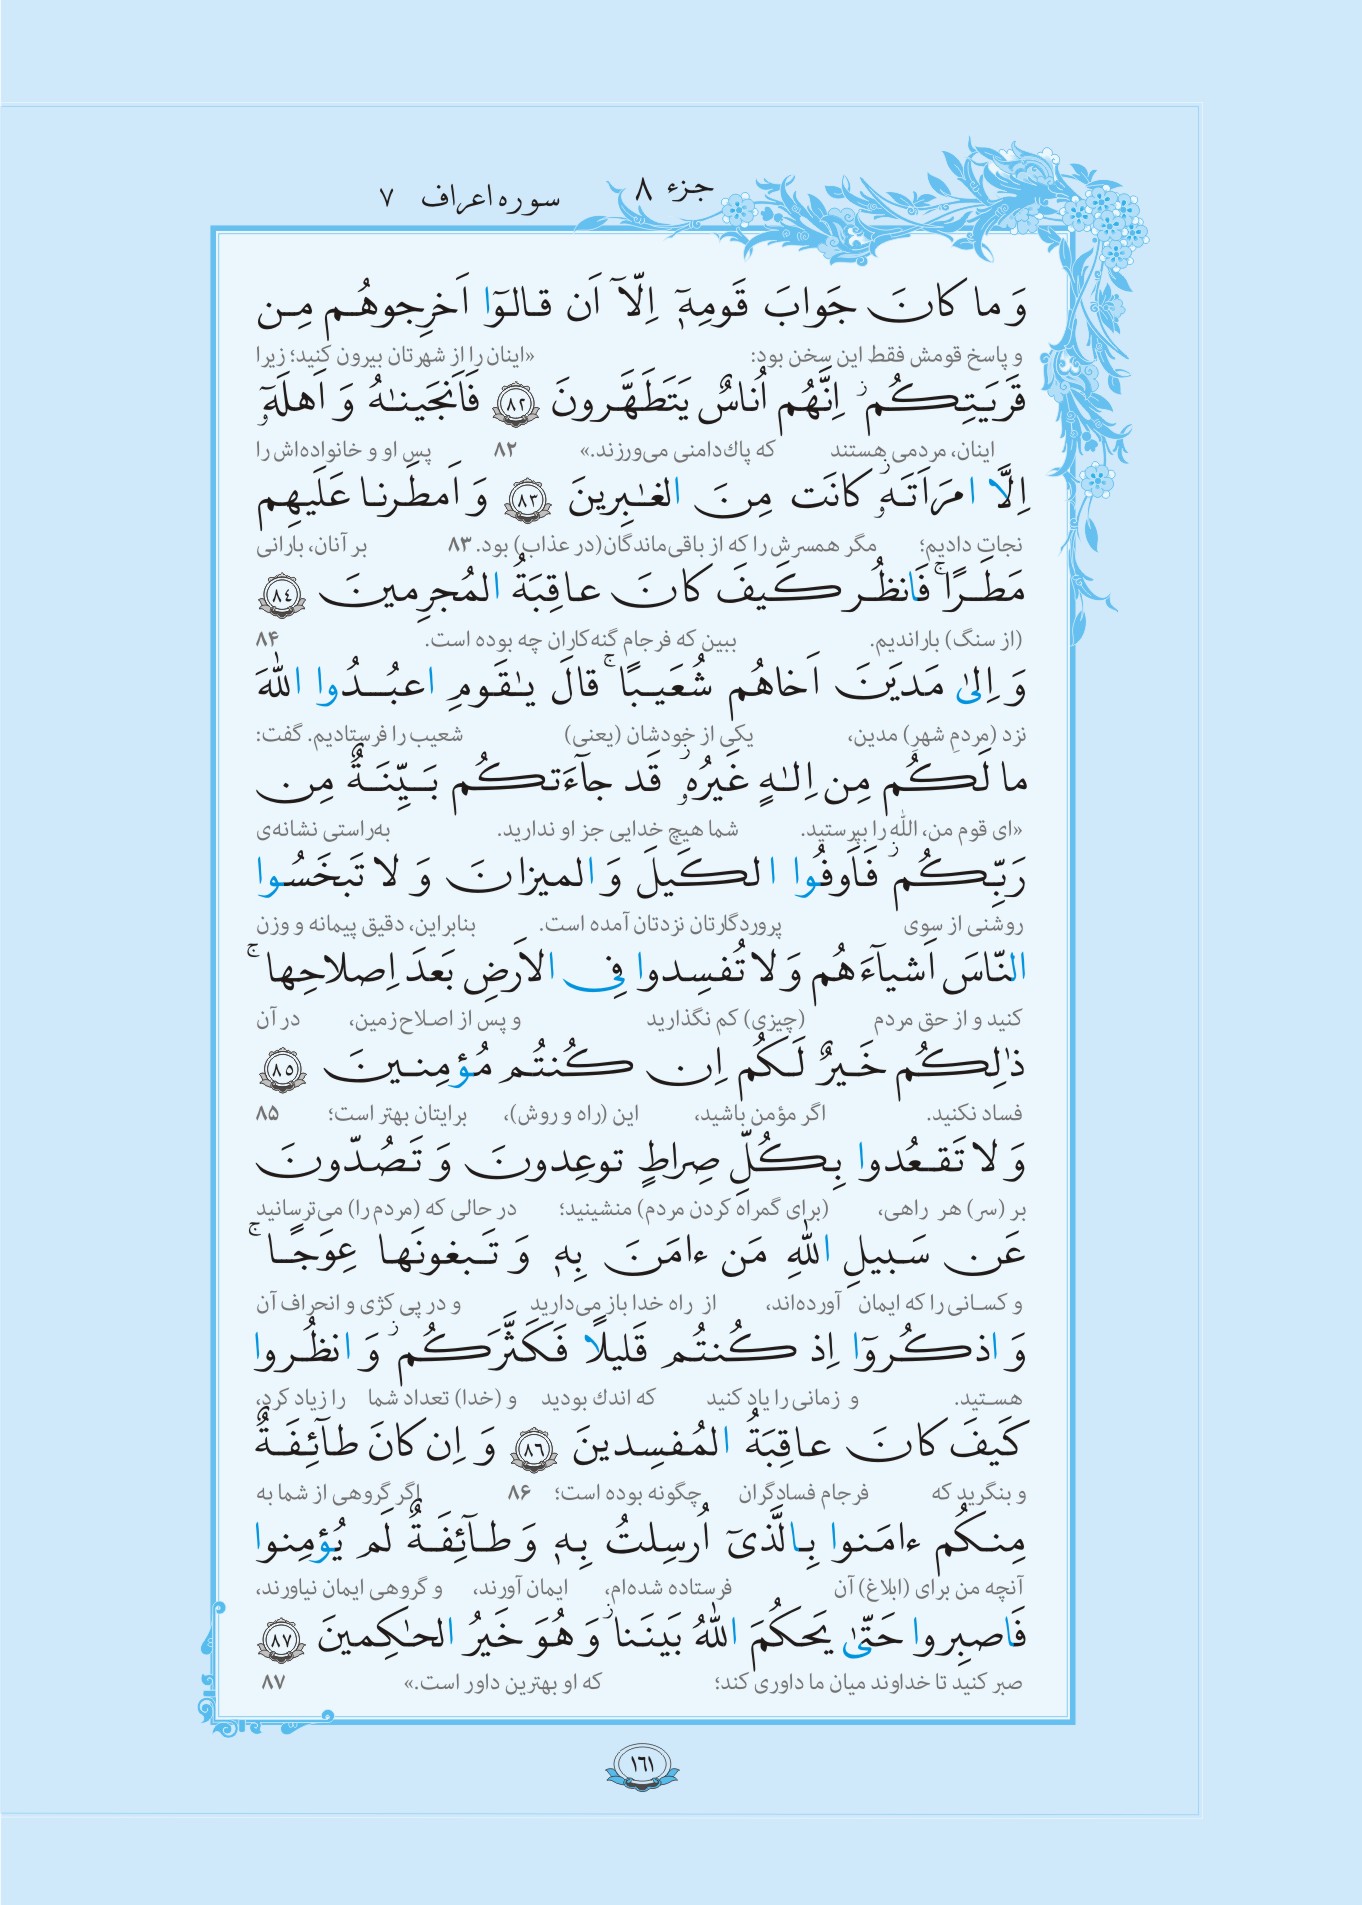 جزء ۸
سوره اعراف ۷
وَ ما كانَ جَوابَ قَومِهٖٓ اِلّآ اَن قالوٓا اَخرِجوهُم مِن
و پاسخ قومش فقط این سخن بود: «اینان را از شهرتان بیرون کنید؛ زیرا
قَريَتِكُم ۖ اِنَّهُم اُناسٌ يَتَطَهَّرونَ ﴿٨٢﴾ فَاَنجَينـٰهُ وَ اَهلَهٗٓ
اینان، مردمی هستند که پاك‌دامنی می‌ورزند.» ۸۲ پس او و خانواده‌اش را
اِلَّا امرَاَتَهٗ ۖ كانَت مِنَ الغـٰبِرينَ ﴿٨٣﴾ وَ اَمطَرنا عَلَيهِم
نجات دادیم؛ مگر همسرش را که از باقی‌ماندگان(در عذاب) بود. ۸۳ بر آنان، بارانی
مَطَرًا ۚ فَانظُر كَيفَ كانَ عاقِبَةُ المُجرِمينَ ﴿٨٤﴾
(از سنگ) باراندیم. ببین که فرجام گنه‌کاران چه بوده است. ۸۴
وَ اِلىٰ مَديَنَ اَخاهُم شُعَيبًا ۚ قالَ يـٰقَومِ اعبُدُوا اللّٰهَ
نزد (مردمِ شهرِ) مدین، یکی از خودشان (یعنی) شعیب را فرستادیم. گفت:
ما لَكُم مِن اِلـٰهٍ غَيرُهٗ ۖ قَد جآءَتكُم بَيِّنَةٌ مِن
«ای قوم من، اللّٰه را بپرستید. شما هیچ خدایی جز او ندارید. به‌راستی نشانه‌ی
رَبِّكُم ۖ فَاَوفُوا الكَيلَ وَ الميزانَ وَ لا تَبخَسُوا
روشنی از سوی پروردگارتان نزدتان آمده است. بنابراین، دقیق پیمانه و وزن
النّاسَ اَشيآءَهُم وَ لا تُفسِدوا فِى الاَرضِ بَعدَ اِصلاحِها ۚ
کنید و از حق مردم (چیزی) کم نگذارید و پس از اصلاح زمین، در آن
ذٰلِكُم خَيرٌ لَكُم اِن كُنتُم مُؤمِنينَ ﴿٨٥﴾
فساد نکنید. اگر مؤمن باشید، این (راه و روش)، برایتان بهتر است؛ ۸۵
وَ لا تَقعُدوا بِكُلِّ صِراطٍ توعِدونَ وَ تَصُدّونَ
بر (سر) هر راهی، (برای گمراه کردن مردم) منشینید؛ در حالی که (مردم را) می‌ترسانید
عَن سَبيلِ اللّٰهِ مَن ءامَنَ بِهٖ وَ تَبغونَها عِوَجًا ۚ
و کسانی را که ایمان آورده‌اند، از راه خدا باز می‌دارید و در پی کژی و انحراف آن
وَ اذكُروٓا اِذ كُنتُم قَليلًا فَكَثَّرَكُم ۖ وَ انظُروا
هستید. و زمانی را یاد کنید که اندك بودید و (خدا) تعداد شما را زیاد کرد،
كَيفَ كانَ عاقِبَةُ المُفسِدينَ ﴿٨٦﴾ وَ اِن كانَ طآئِفَةٌ
و بنگرید که فرجام فسادگران چگونه بوده است؛ ۸۶ اگر گروهی از شما به
مِنكُم ءامَنوا بِالَّذىٓ اُرسِلتُ بِهٖ وَ طآئِفَةٌ لَم يُؤمِنوا
آنچه من برای (ابلاغ) آن فرستاده شده‌ام، ایمان آورند، و گروهی ایمان نیاورند،
فَاصبِروا حَتّىٰ يَحكُمَ اللّٰهُ بَينَنا ۖ وَ هُوَ خَيرُ الحـٰكِمينَ ﴿٨٧﴾
صبر کنید تا خداوند میان ما داوری کند؛ که او بهترین داور است.» ۸۷
١٦١